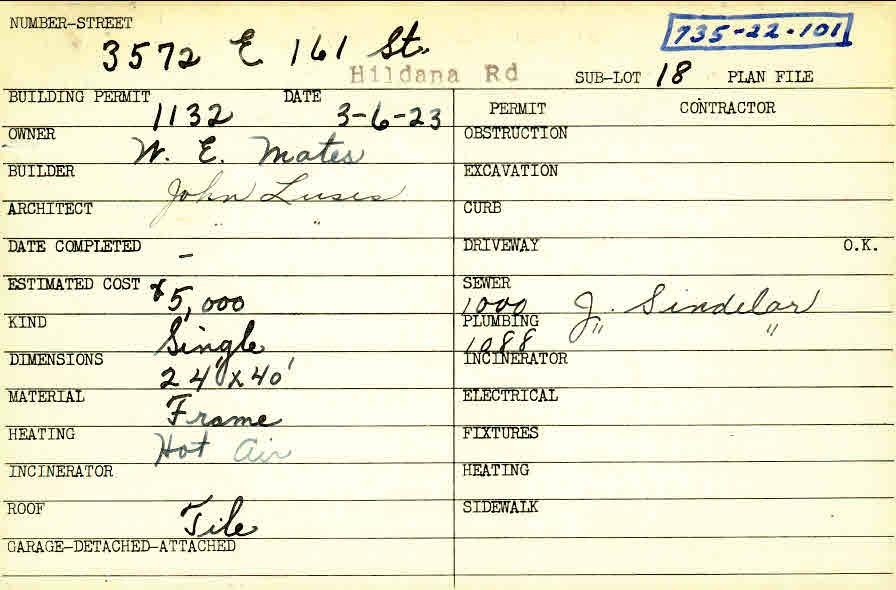 NUMBER-STREET
3572 E 161 St.
735-22-101
Hildana Rd
SUB-LOT 18 PLAN FILE
BUILDING PERMIT 1132 DATE 3-6-23
OWNER W. E. Mates
BUILDER John Lusis
ARCHITECT " "
DATE COMPLETED -
ESTIMATED COST $5,000
KIND Single
DIMENSIONS 24'x40'
MATERIAL Frame
HEATING Hot Air
INCINERATOR
ROOF Tile
GARAGE-DETACHED-ATTACHED
PERMIT CONTRACTOR
OBSTRUCTION
EXCAVATION
CURB
DRIVEWAY O.K.
SEWER 1000 J. Sindelar
PLUMBING 1088 " "
INCINERATOR
ELECTRICAL
FIXTURES
HEATING
SIDEWALK